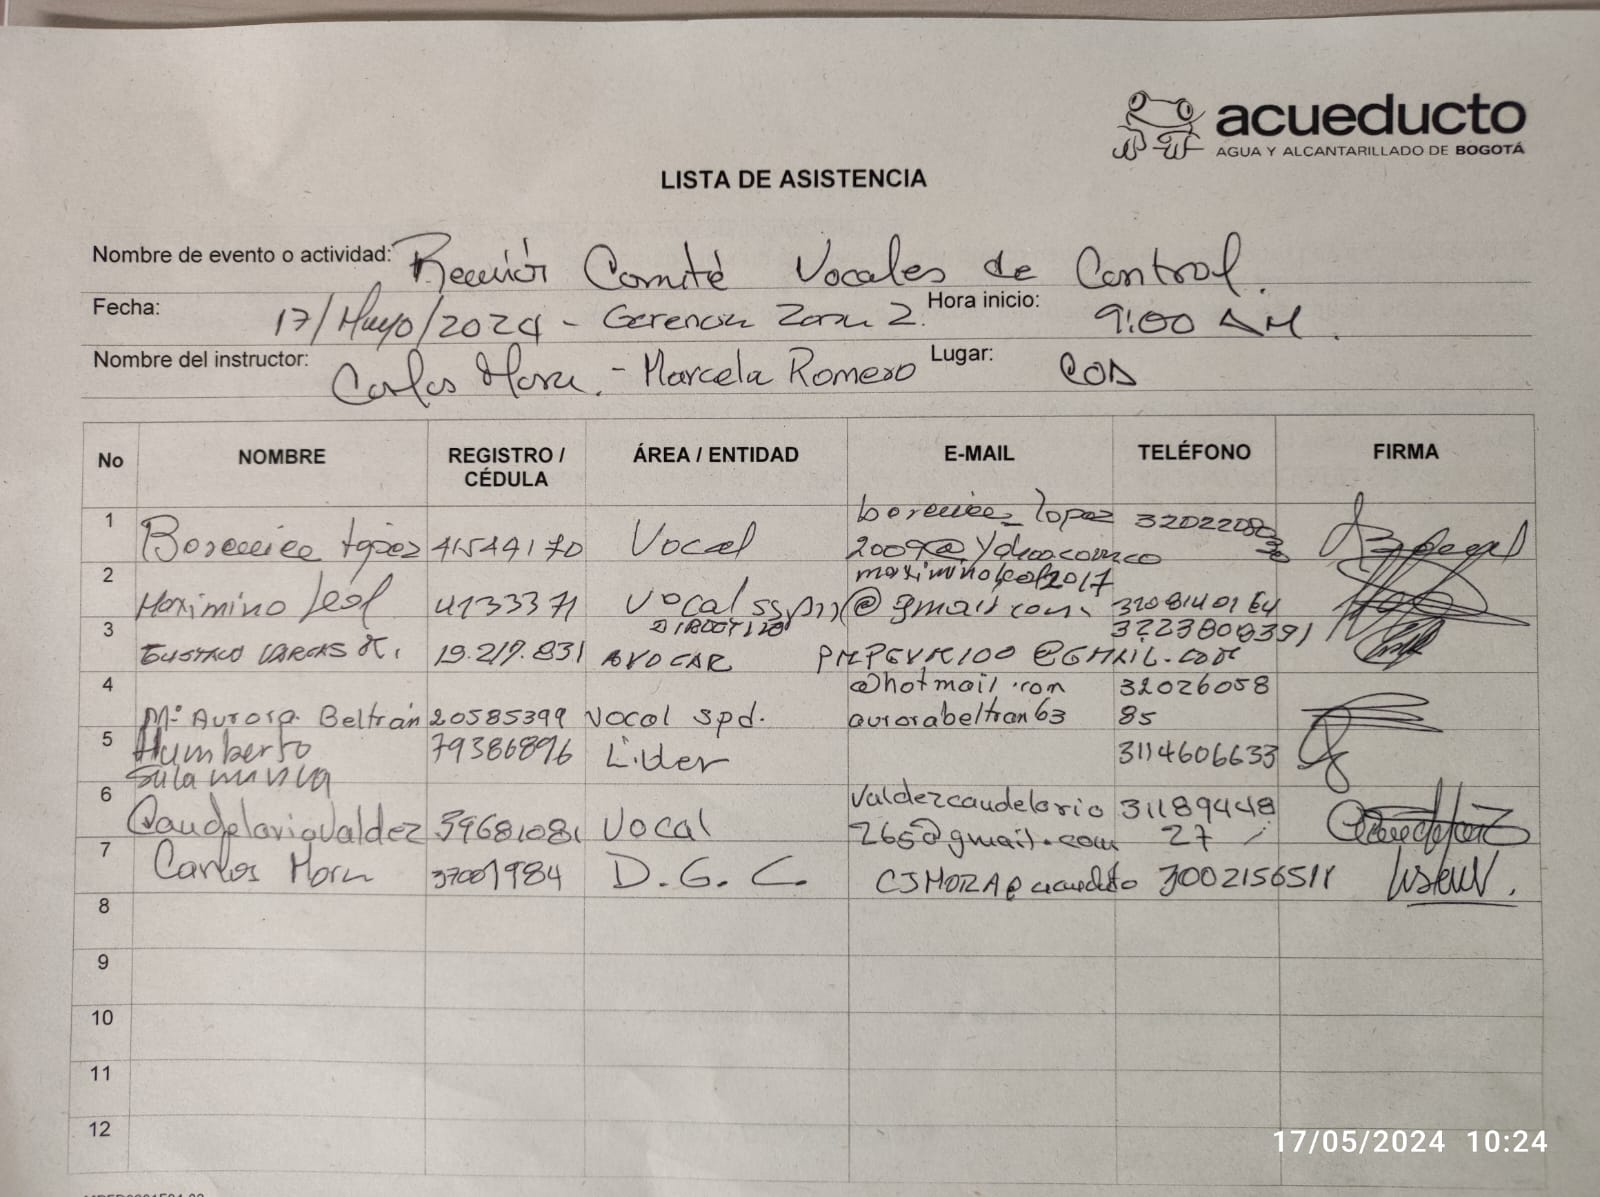 acueducto
AGUA Y ALCANTARILLADO DE BOGOTÁ
LISTA DE ASISTENCIA
Nombre de evento o actividad: Reunión Comité Vocales de Control.
Fecha: 17/Mayo/2024 - Gerencia Zona 2. Hora inicio: 9:00 AM.
Nombre del instructor: Carlos Mora. - Marcela Romero Lugar: COA
No NOMBRE REGISTRO / CÉDULA ÁREA / ENTIDAD E-MAIL TELÉFONO FIRMA
1 López 41544170 Vocal
2 Maximino Leal 4133371 Vocal @gmail.com. 3208140164
3 GUSTAVO VARGAS R. 19.217.831 AVOCAR PMPGVR100@GMAIL.COM 3223808391
4 Mª Aurora Beltrán 20585399 Vocal spd. @hotmail.com aurorabeltran63 32026058 85
5 Humberto Salamanca 79386896 Lider 3114606633
6 Caudelaria Valdez 39681081 Vocal Valdezcaudelaria 265@gmail.com 31189448 27
7 Carlos Mora D.G.C. CJMORA@acueducto 3002156511
8
9
10
11
12
17/05/2024 10:24